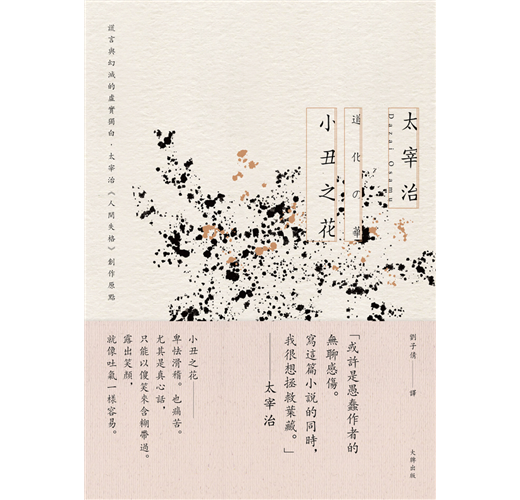 太宰治
Dazai Osamu
道化の華
小丑之花
謊言與幻滅的虛實獨白・太宰治《人間失格》創作原點
劉子倩——譯
大牌出版
「或許是愚蠢作者的
無聊感傷。
寫這篇小說的同時，
我很想拯救葉藏。」
——太宰治
小丑之花——
卑怯滑稽。也痛苦。
尤其是真心話，
只能以傻笑來含糊帶過。
露出笑顏，
就像吐氣一樣容易。